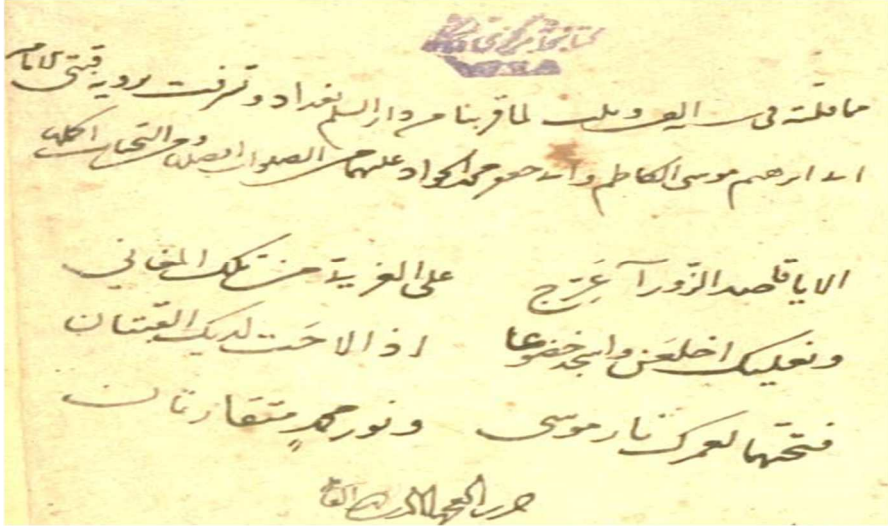 مما قلته في سنة الف و لما قربنا من دار السلم بغداد وتشرفت برؤية قبتي الامام
ابراهيم موسى الكاظم وابي جعفر محمد الجواد عليهما من الصلوات افضلها ومن التحيات اكملها
الا يا قاصد الزورآ عَرّج على الغربي من تلك المغاني
ونعليك اخلعَن واسجد خضوعا اذا لاحَت لديك القبتان
فتحتهما لعمرك نار موسى ونور محمدٍ متقارنان